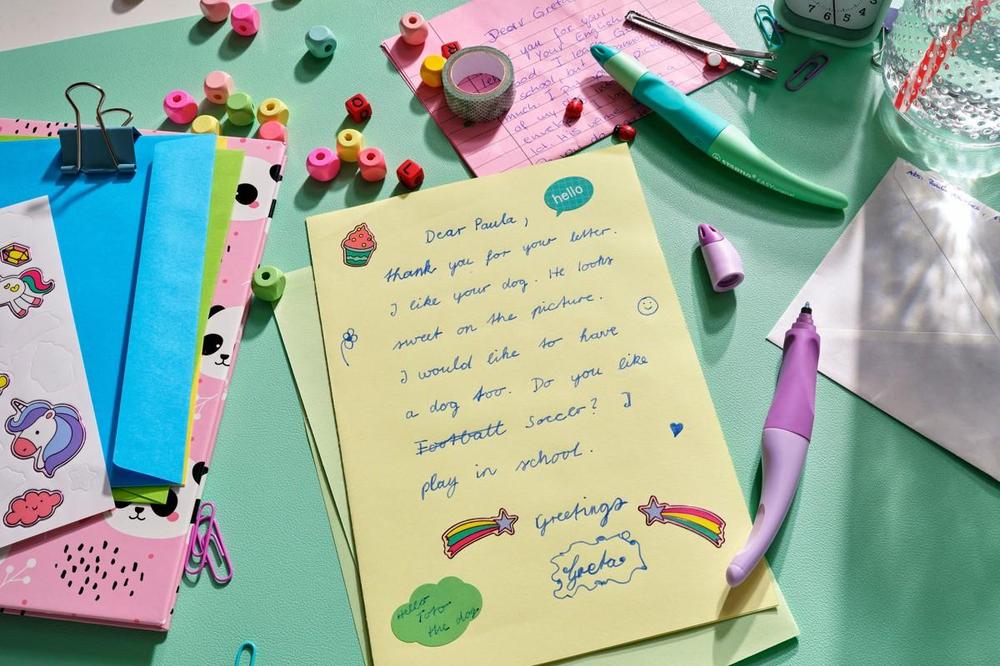 Dear Greta
you for your
Your English
good I
school, but
much. I
of my
lot. His
STABILO EASY
6 5 4
hello
Dear Paula,
thank you for your letter.
I like your dog. He looks
sweet on the picture.
I would like to have
a dog too. Do you like
Football Soccer? I
play in school.
Greetings
Greta
Hello
Toto
the dog